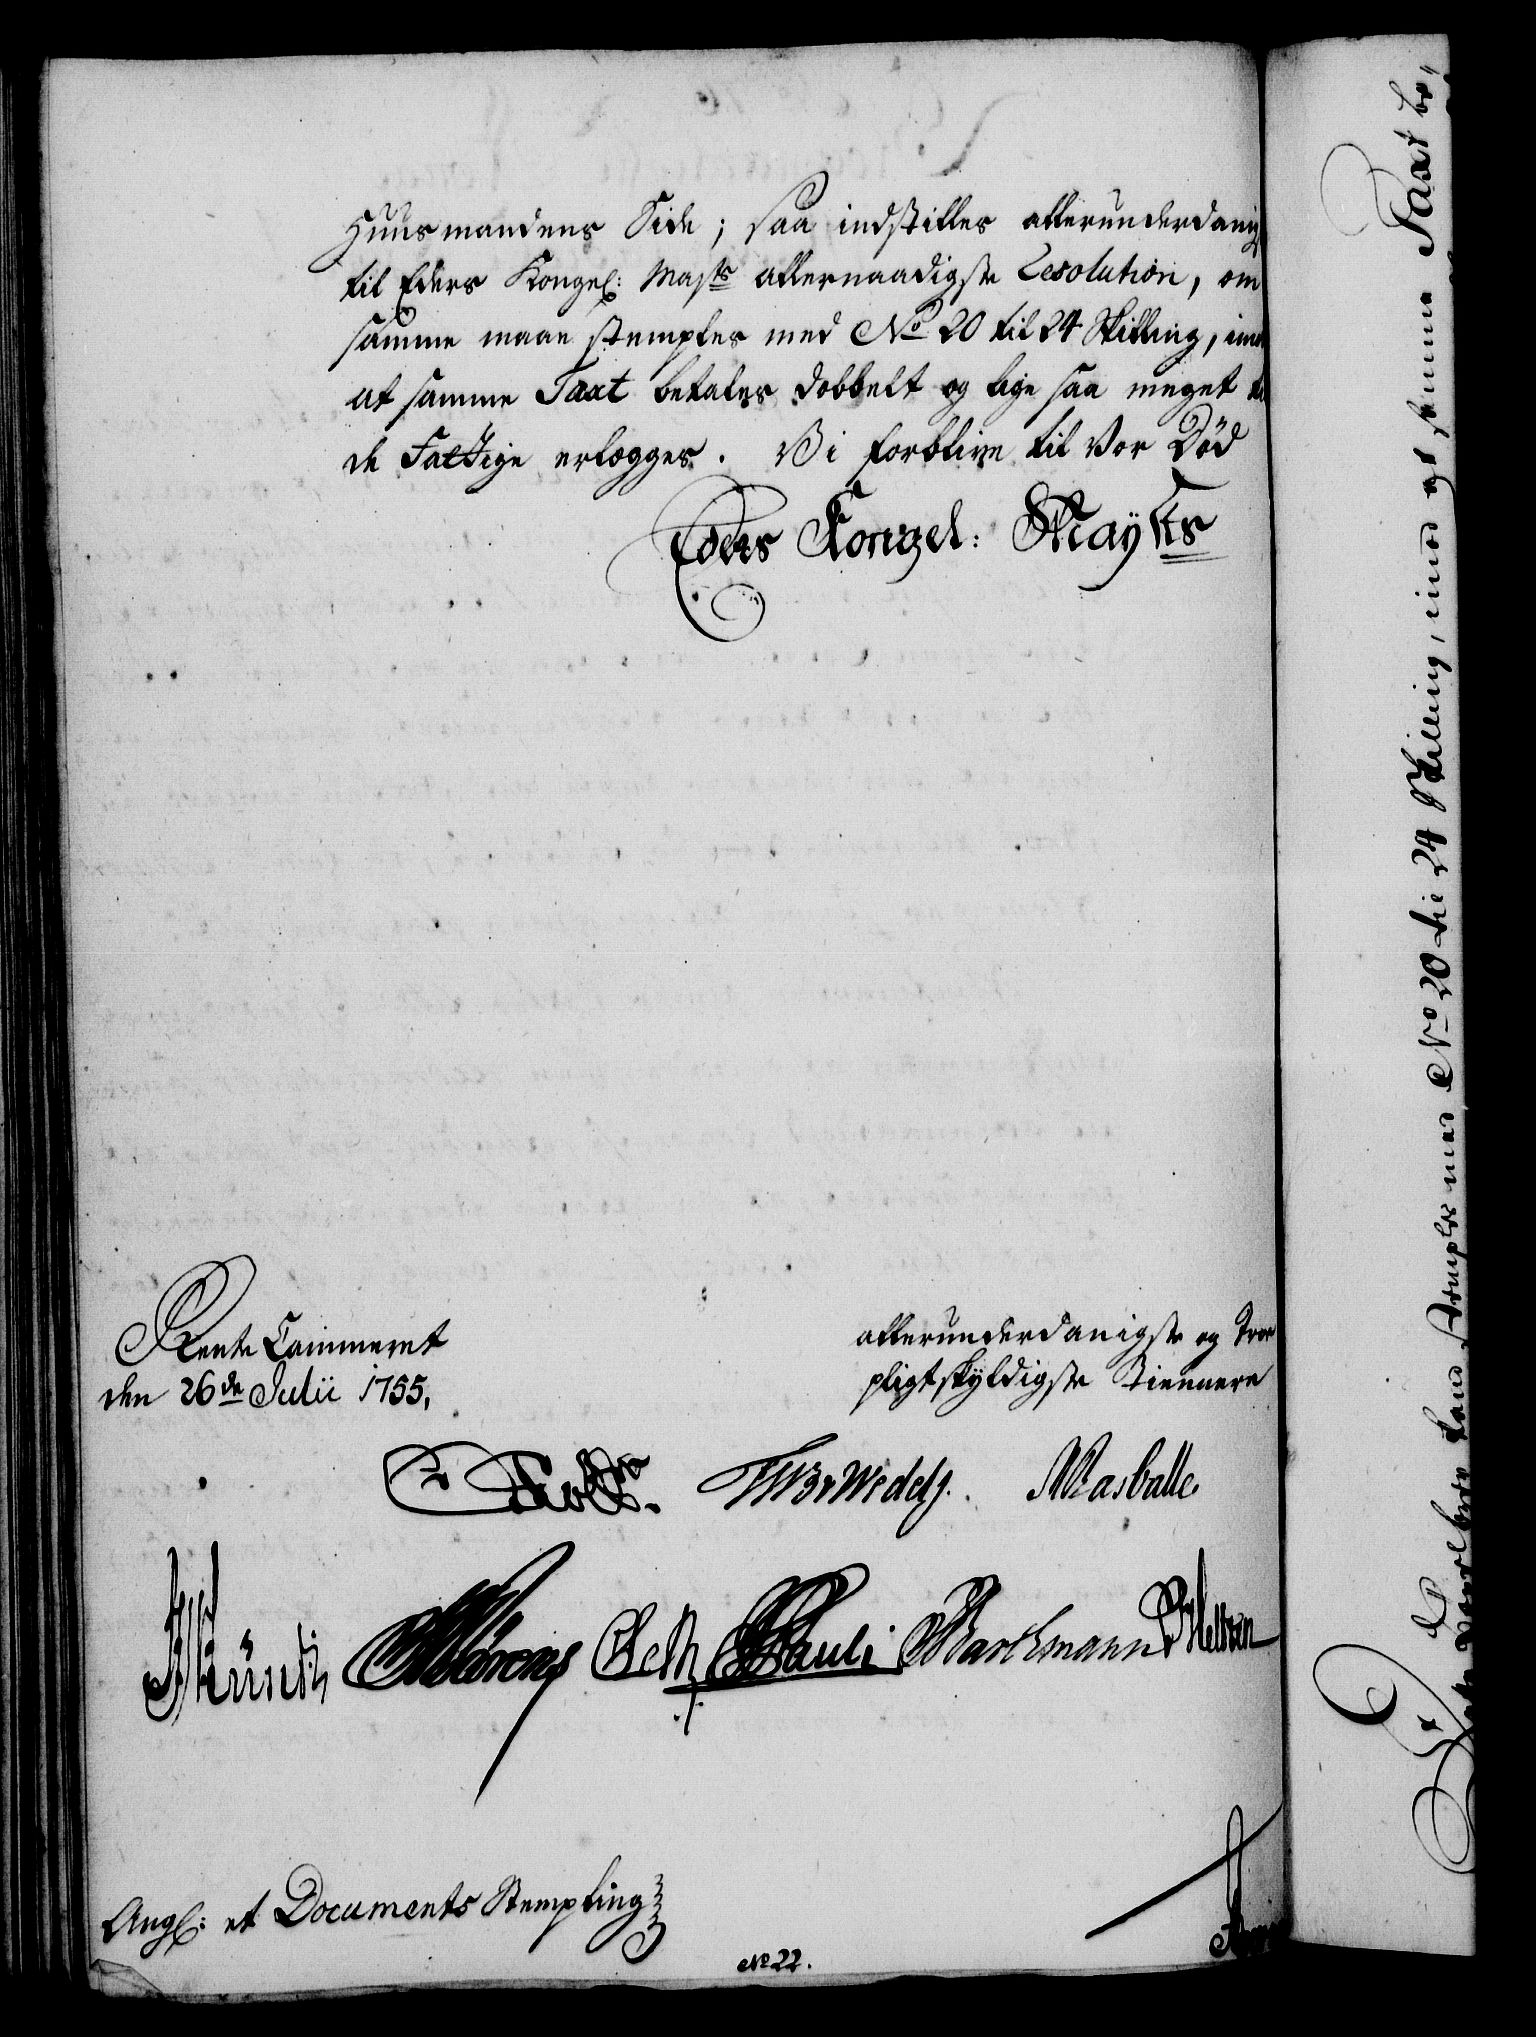 Huusmandens Side; saa indstilles allerunderdanigst
til Eders Kongel: Mayts allernaadigste Resolution, om
samme maae stemples med No 20 til 24 Skilling, imod
at samme Taxt betales dobbelt og lige saa meget til
de Fattige erlægges. Vi forblive til Vor Død
Eders Kongel: Mayts
Rente Cammeret
den 26de Julii 1755,
allerunderdanigste og Troe
pligtskyldigste Tiennere
Holst. Wedel. Rasballe
Pauli Barchmann
Ang: et Documents Stempling
No 22.
Det Taarlborg Land stemples med No 20 til 24 Skilling, imod at samme Taxt be„